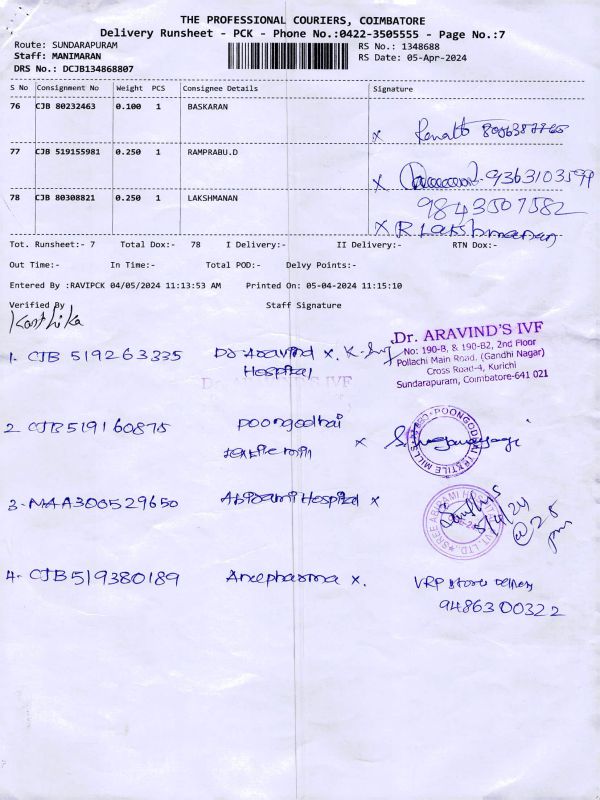 THE PROFESSIONAL COURIERS, COIMBATORE
Delivery Runsheet - PCK - Phone No.:0422-3505555 - Page No.:7
Route: SUNDARAPURAM
RS No.: 1348688
Staff: MANIMARAN
RS Date: 05-Apr-2024
DRS No.: DCJB134868807
S No Consignment No Weight PCS Consignee Details Signature
76 CJB 80232463 0.100 1 BASKARAN
x
77 CJB 519155981 0.250 1 RAMPRABU.D
x 9363103599
78 CJB 80308821 0.250 1 LAKSHMANAN
9843507582
x R Lakshmanan
Tot. Runsheet:- 7 Total Dox:- 78 I Delivery:- II Delivery:- RTN Dox:-
Out Time:- In Time:- Total POD:- Delvy Points:-
Entered By :RAVIPCK 04/05/2024 11:13:53 AM Printed On: 05-04-2024 11:15:10
Verified By Staff Signature
Karthika
1. CJB 519263335 Dr Aravind x.
Hospital
Dr. ARAVIND'S IVF
No: 190-B, & 190-B2, 2nd Floor
Pollachi Main Road, (Gandhi Nagar)
Cross Road-4, Kurichi
Sundarapuram, Coimbatore-641 021
2 CJB519160875 poongodhai
textile mill x
POONGODHAI TEXTILE MILLS
3. MAA300529650 Abirami Hospital x
SREE ABIRAMI HOSPITAL PVT. LTD.
5/4/24
@ 2 5
pm
4. CJB519380189 Aneepharma x. VRP store delivery
9486300322